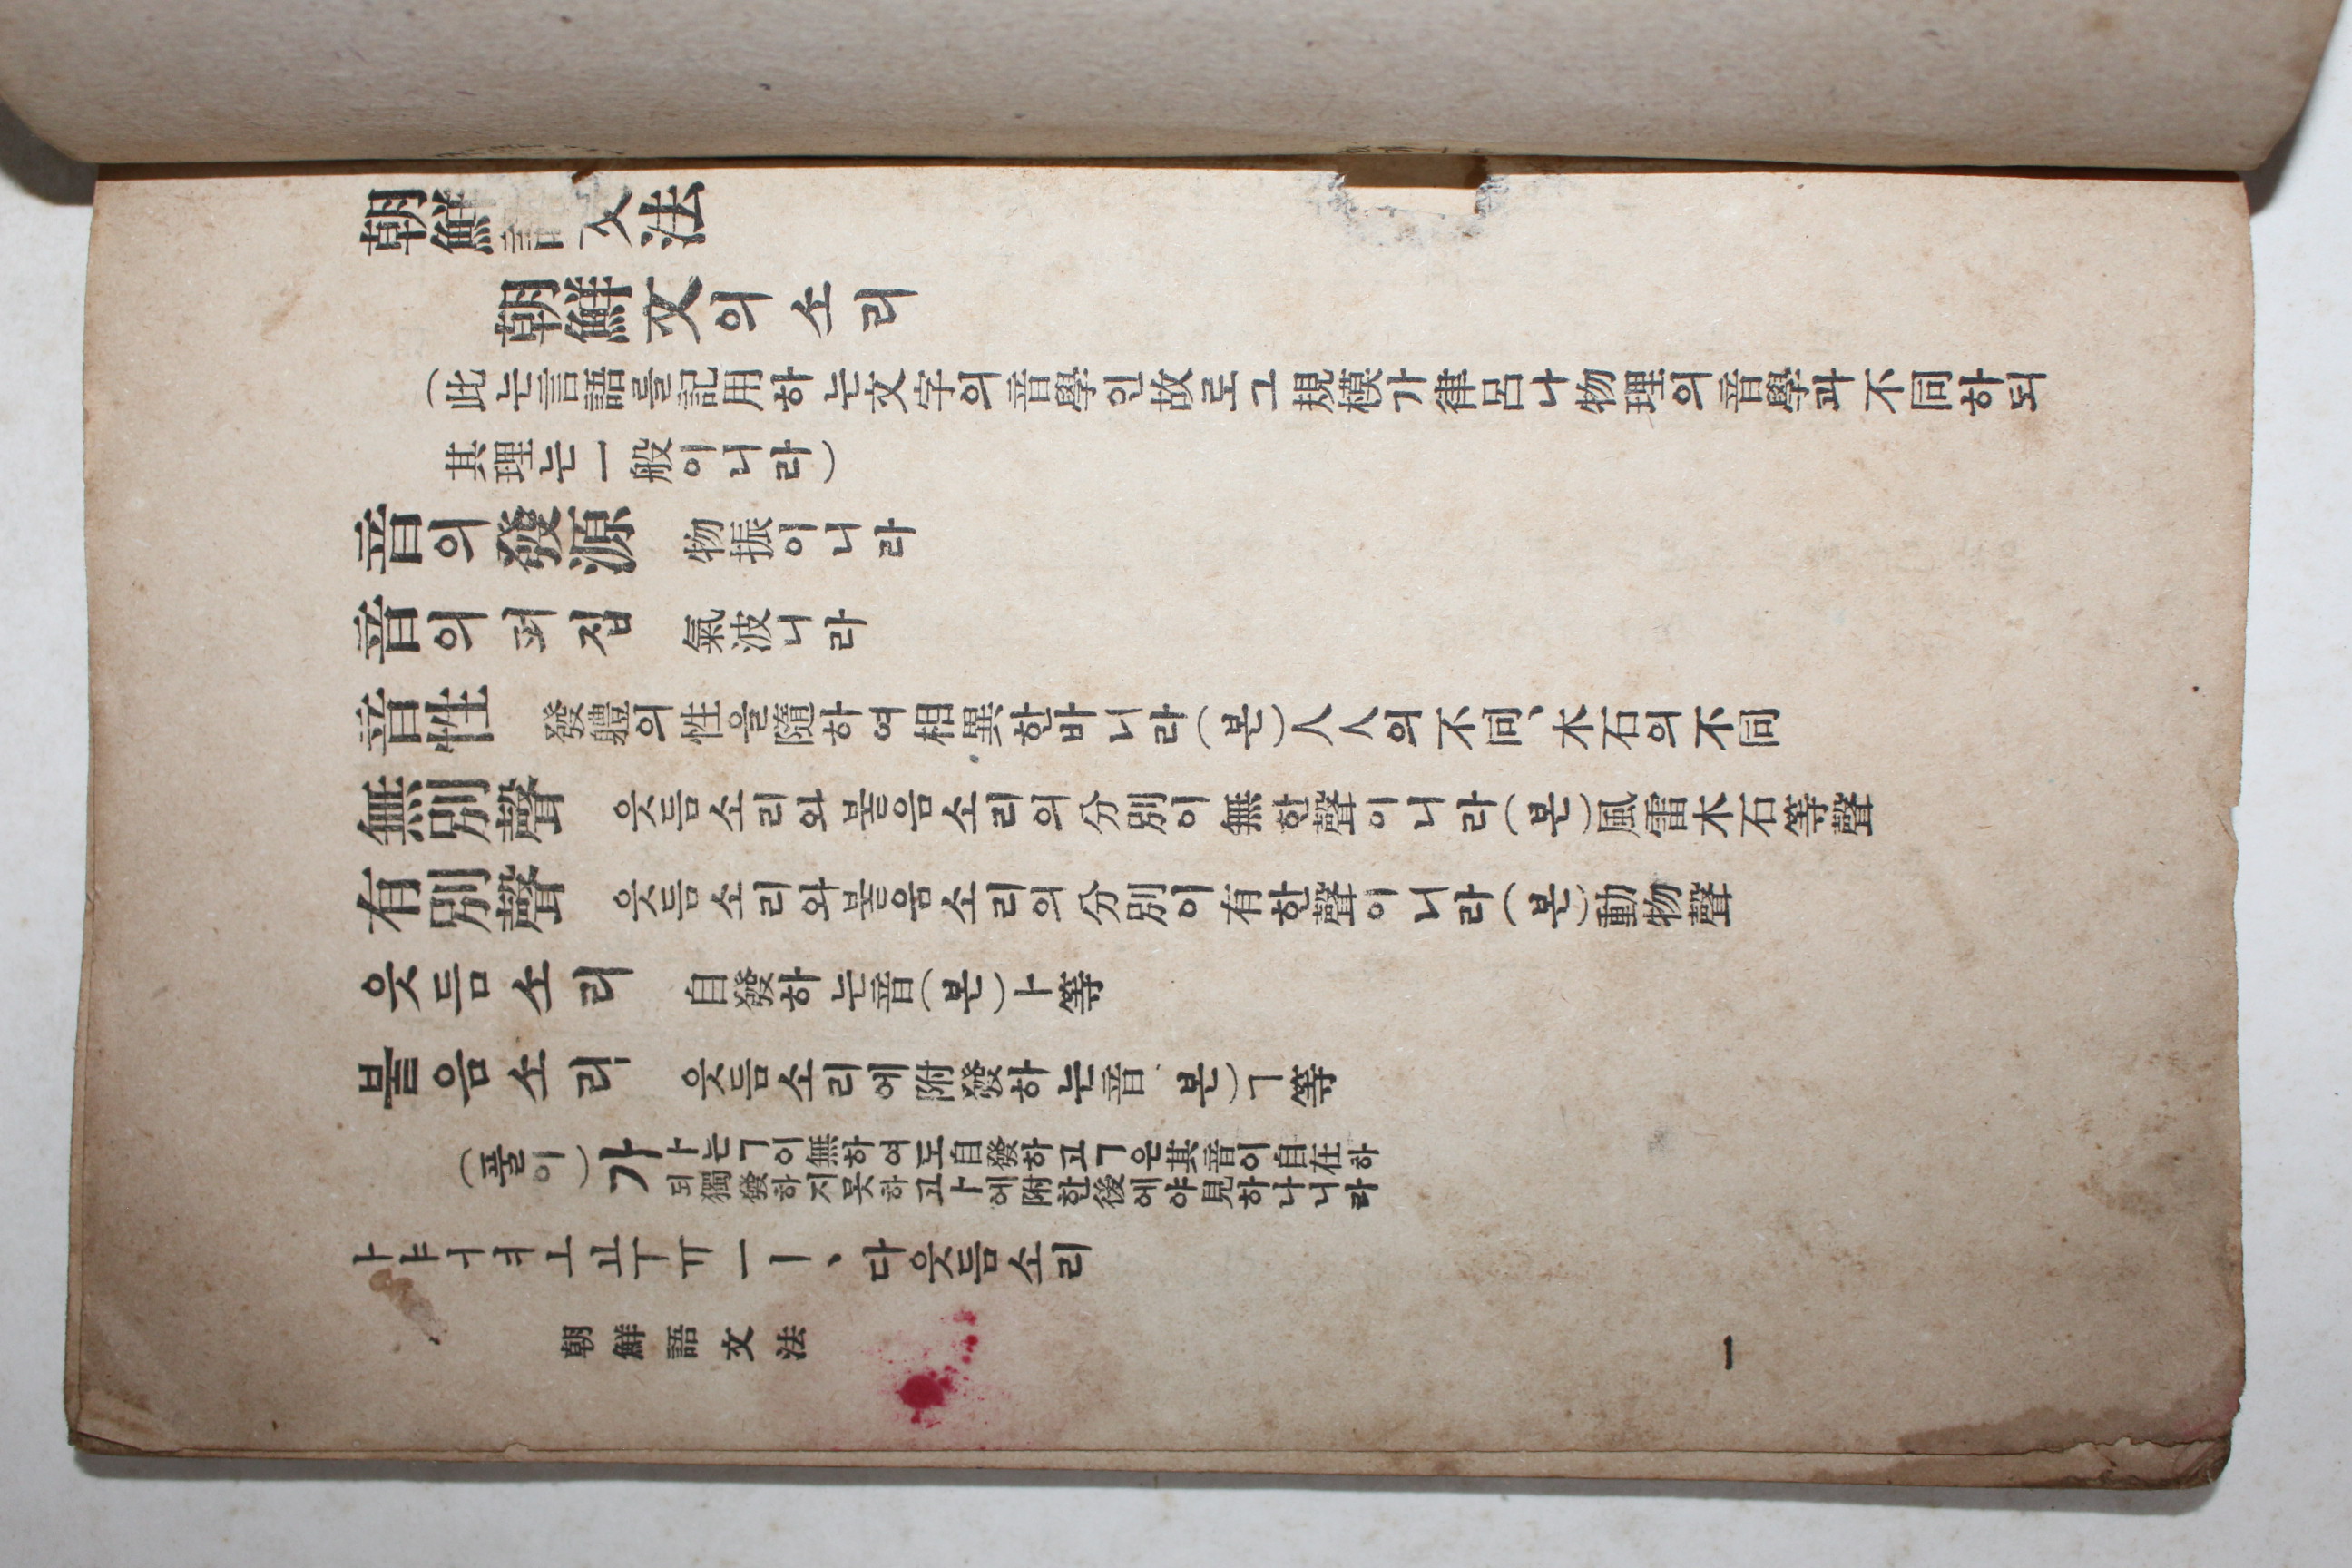 朝鮮語文法
朝鮮文의소리
(此는言語를記用하는文字의音學인故로그規模가律呂나物理의音學과不同하되
其理는一般이니라)
音의發源 物振이니라
音의퍼짐 氣波니라
音性 發體의性을隨하여相異한바니라(본)人人의不同、木石의不同
無別聲 웃듬소리와붙음소리의分別이無한聲이니라(본)風雷木石等聲
有別聲 웃듬소리와붙음소리의分別이有한聲이니라(본)動物聲
웃듬소리 自發하는音(본)ㅏ等
붙음소리 웃듬소리에附發하는音 본)ㄱ等
(풀이)가 ㅏ는ㄱ이無하여도自發하고ㄱ은其音이自在하
되獨發하지못하고ㅏ에附한後에야見하나니라
ㅏㅑㅓㅕㅗㅛㅜㅠㅡㅣ、다웃듬소리
朝鮮語文法
一